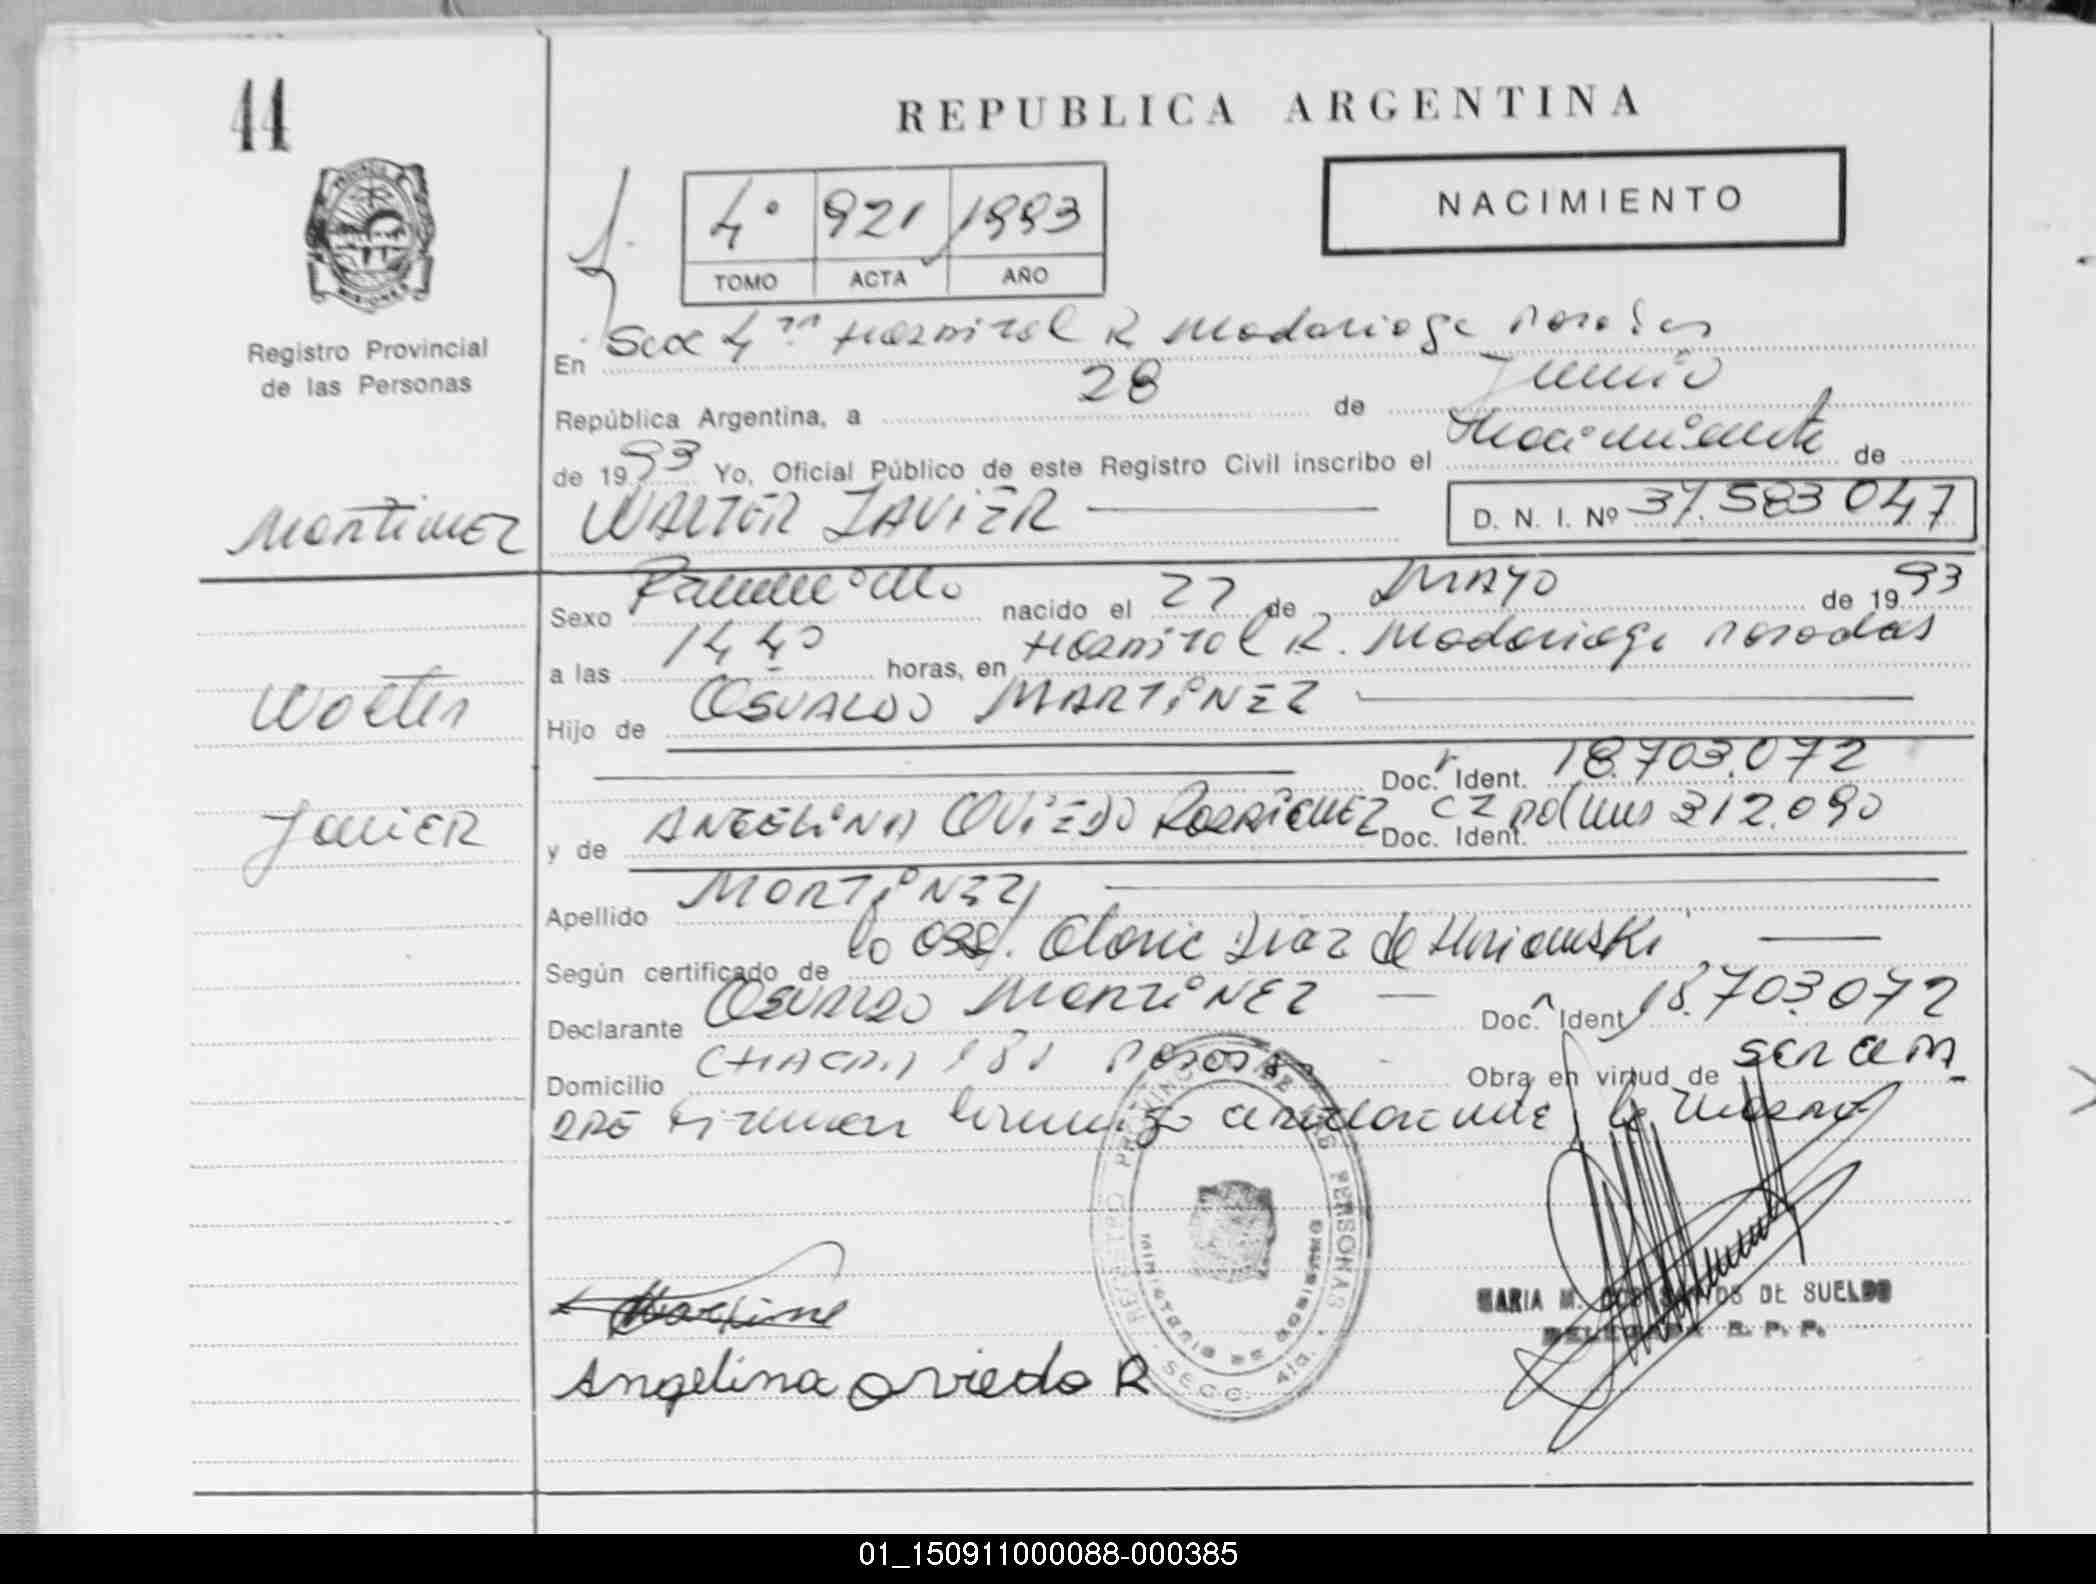 44
REPUBLICA ARGENTINA
NACIMIENTO
4° 921 1993
TOMO ACTA AÑO
Registro Provincial
de las Personas
En Secc 4ta Hospital R Madariaga Posadas
República Argentina, a 28 de Junio
de 1993 Yo, Oficial Público de este Registro Civil inscribo el Nacimiento de
Martinez
WALTER JAVIER
D. N. I. Nº 37.583047
Sexo nacido el 27 de MAYO de 1993
a las 14 40 horas, en Hospital R. Madariaga Posadas
Walter
Hijo de OSVALDO MARTINEZ
Doc. Ident. 18.703.072
Javier
y de ANGELINA OVIEDO RODRIGUEZ Doc. Ident. CI 312.090
Apellido MARTINEZ
Según certificado de la Obst. Diaz de
Declarante OSVALDO MARTINEZ Doc. Ident 18.703.072
Domicilio CHACRA 181 Posadas Obra en virtud de SER
DRE Firman conmigo declarante, la madre
REGISTRO PROVINCIAL DE LAS PERSONAS
MINISTERIO DE GOBIERNO
SECC. 4ta.
MARIA M. DOS SANTOS DE SUELDO
DELEGADA R. P. P.
Angelina Oviedo R
01_150911000088-000385